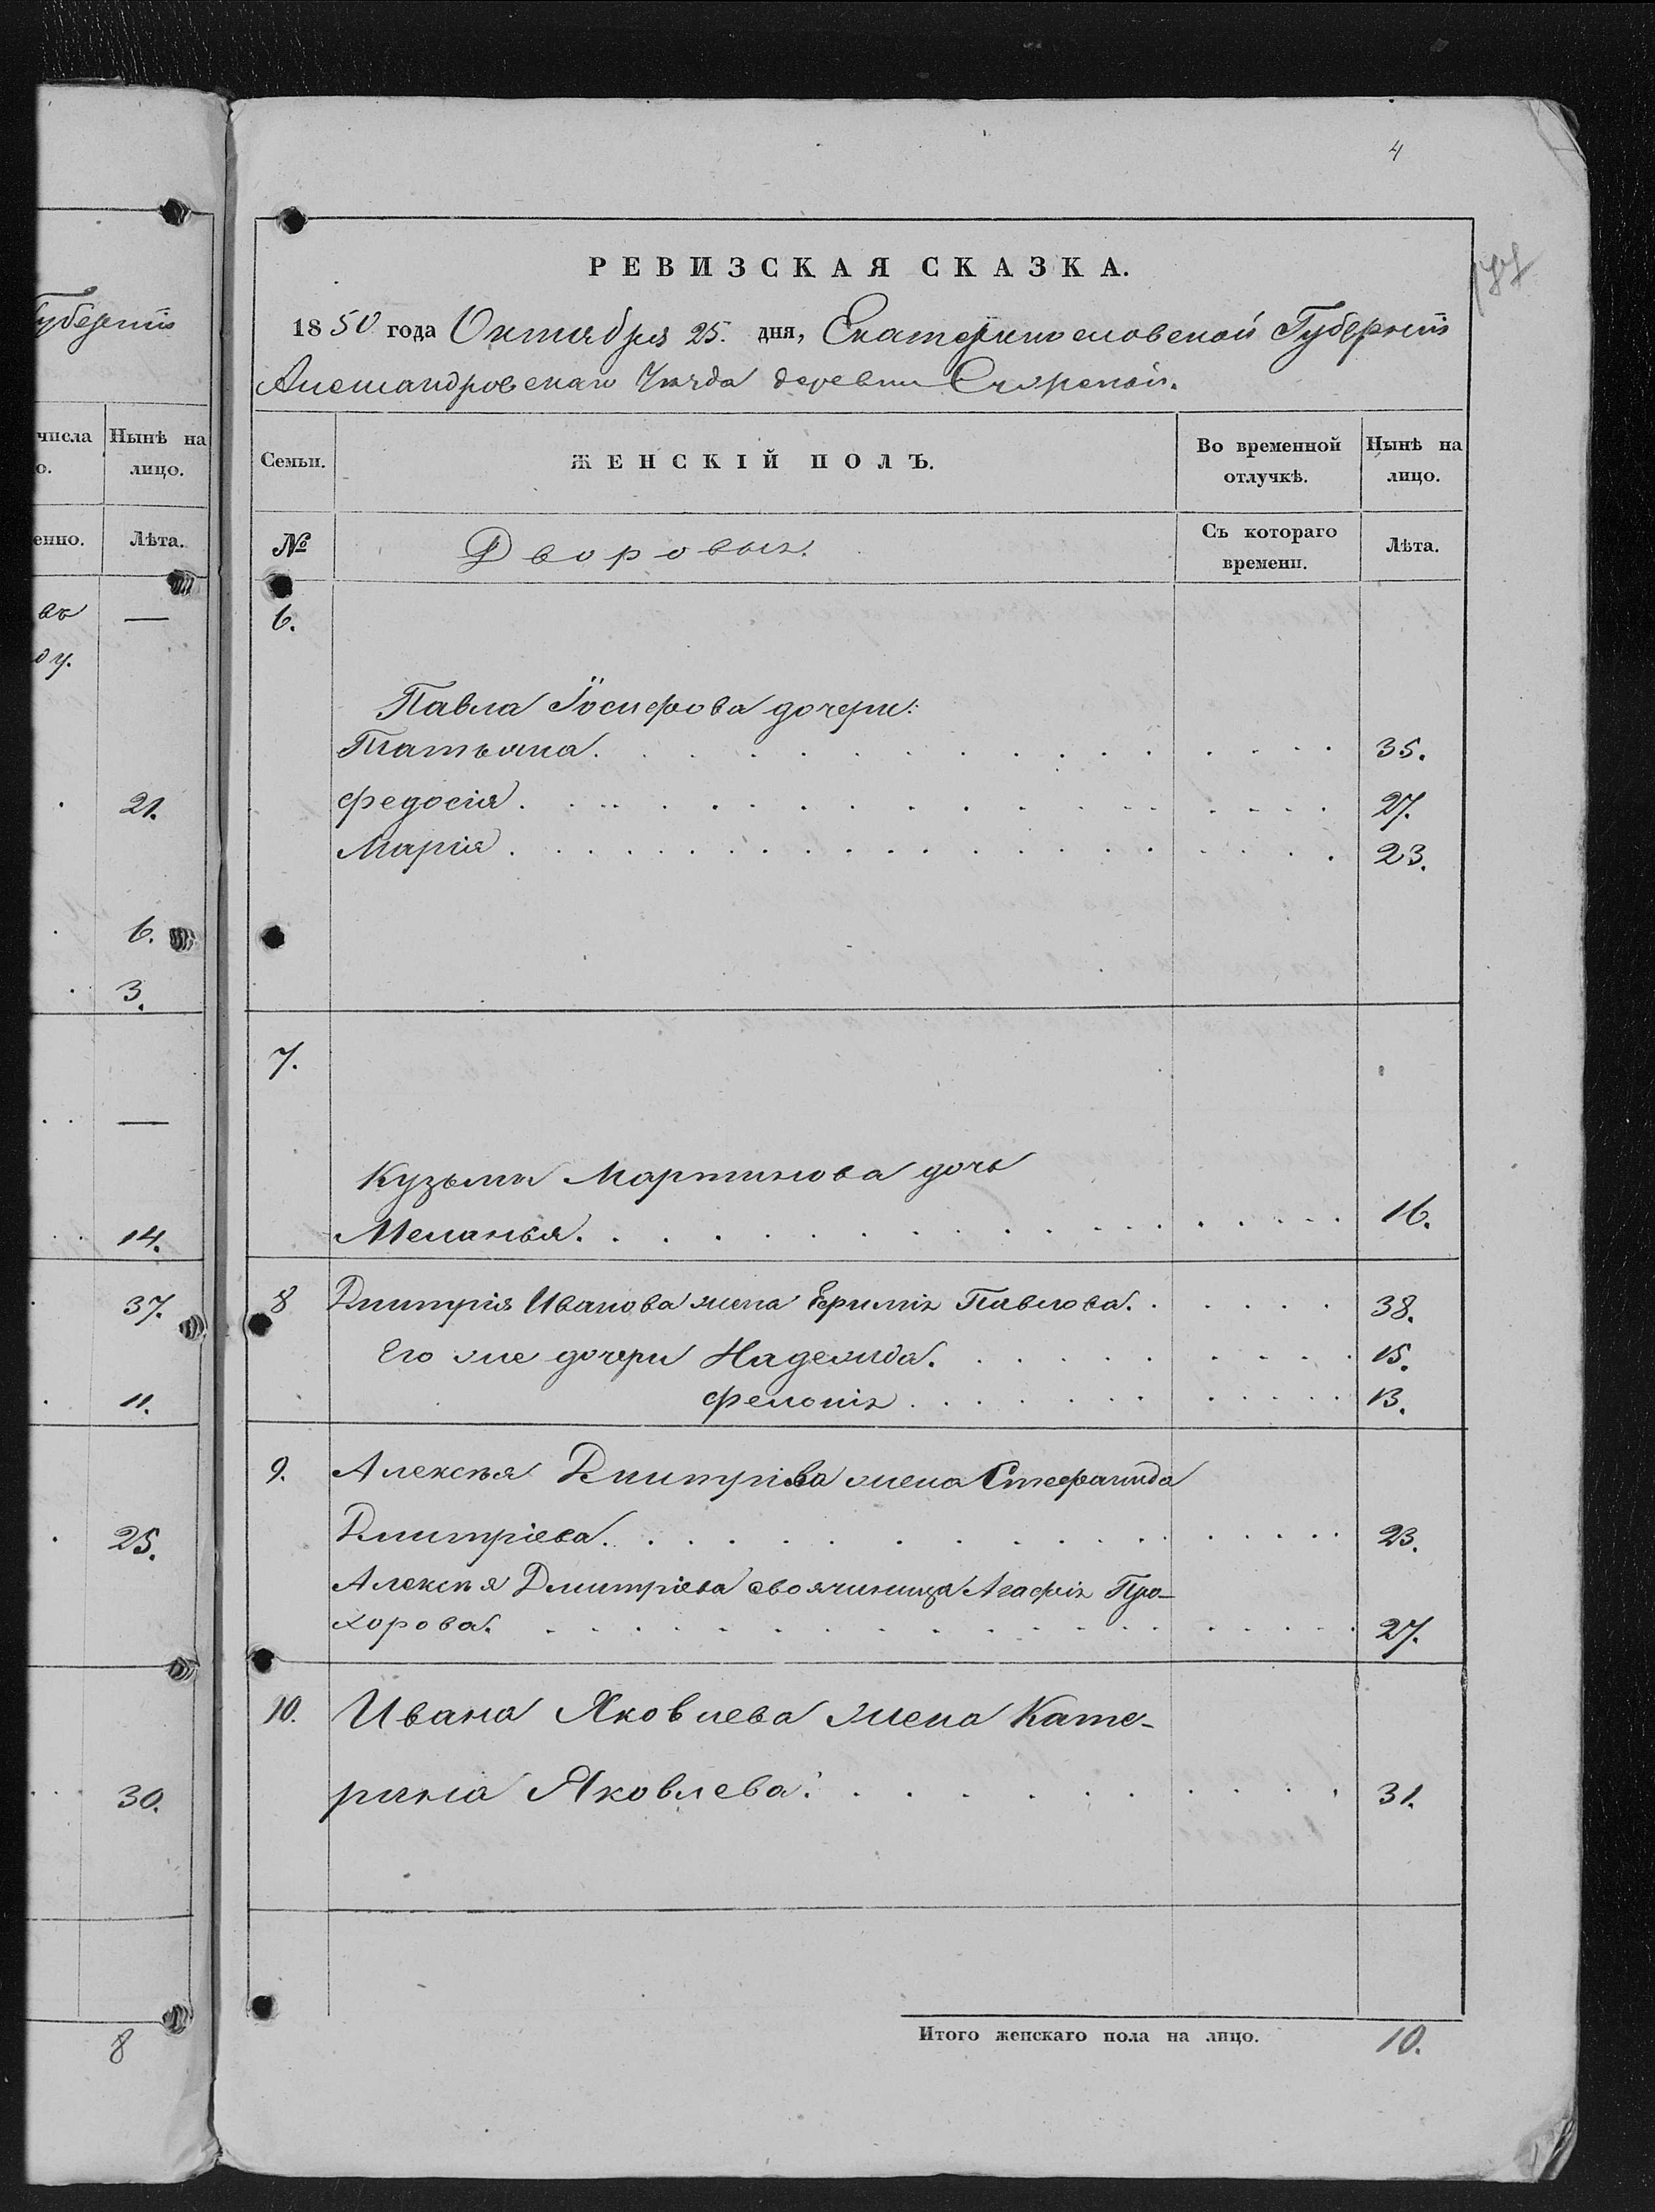 4
177
губерніи
РЕВИЗСКАЯ СКАЗКА.
1850 года Октября 25. дня, Екатеринославской Губерніи
Александровскаго Уѣзда деревни
числа
о.
Нынѣ на лицо.
енно.
Лѣта.
въ —
ду.
21.
6.
3.
—
14.
37.
11.
25.
30.
8
Семьи.
ЖЕНСКІЙ ПОЛЪ.
Во временной отлучкѣ.
Нынѣ на лицо.
№
Дворовыхъ.
Съ котораго времени.
Лѣта.
6.
Павла Іосифова дочери:
Татьяна. 35.
Федосія. 27.
Марія. 23.
7.
Кузьмы Мартинова дочь
Меланья. 16.
8 Дмитрія Иванова жена Ефимія Павлова. 38.
Его же дочери Надежда. 15.
Фелонія. 13.
9. Алексѣя Дмитріева жена Стефанида
Дмитріева. 23.
Алексѣя Дмитріева своячиница Агафія Про-
хорова. 27.
10. Ивана Яковлева жена Кате-
рина Яковлева. 31.
Итого женскаго пола на лицо. 10.